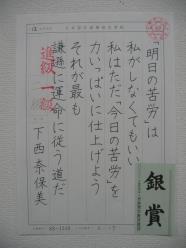 「明日の苦労」は
私がしなくてもいい
私はただ「今日の苦労」を
力いっぱいに仕上げよう
それが最も
謙遜に運命に従う道だ
下西奈保美
進級 一級
銀賞